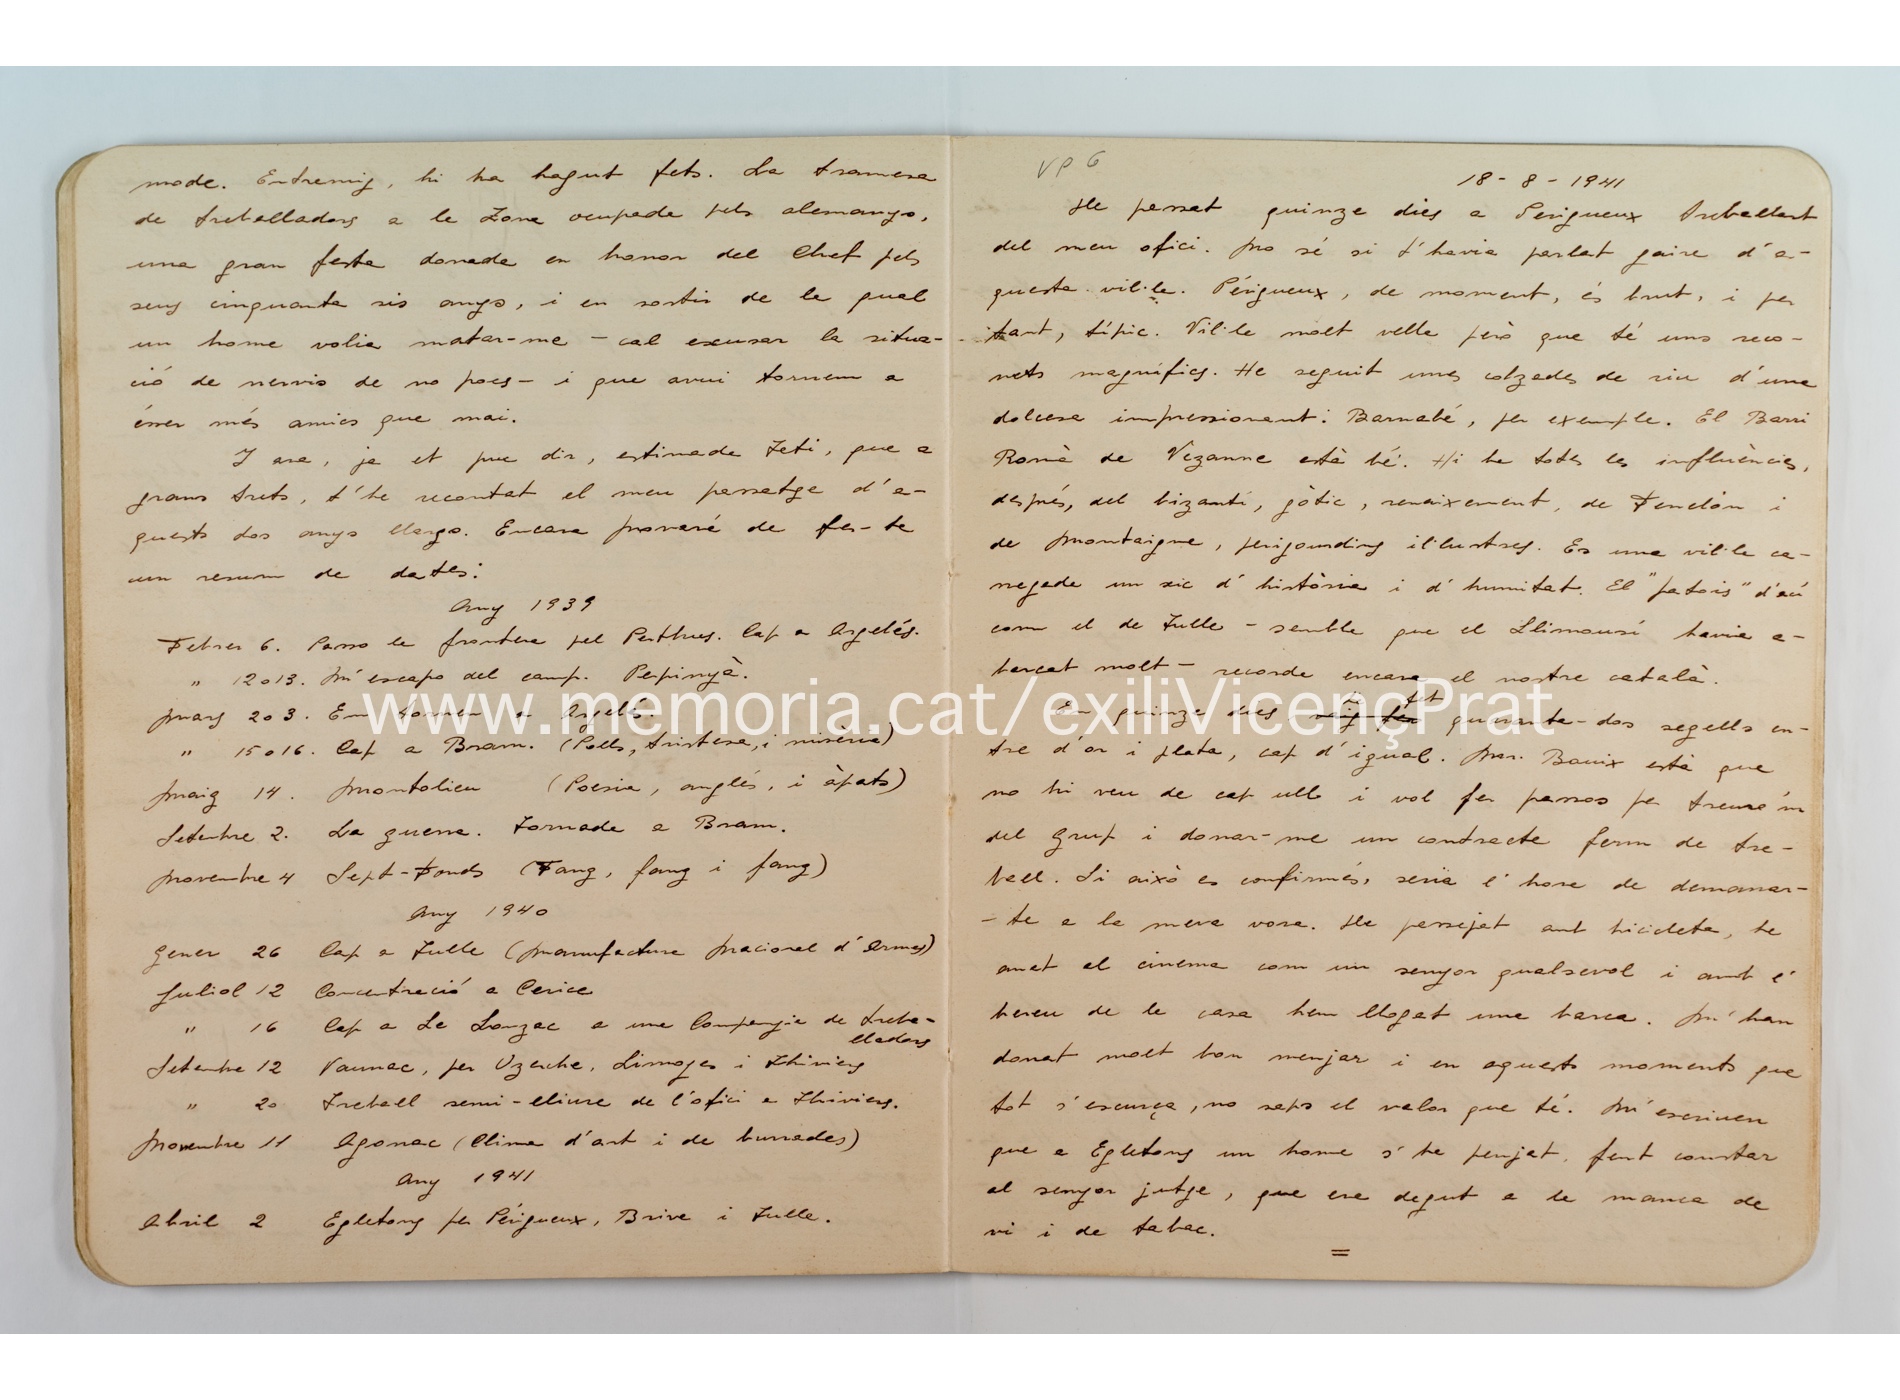 mode. Entremig, hi ha hagut fets. La tramesa
de treballadors a la Zona ocupada pels alemanys,
una gran festa donada en honor del Chef pels
seus cinquanta sis anys, i en sortir de la qual
un home volia matar-me – cal excusar la situa-
ció de nervis de no pocs – i que avui tornem a
ésser més amics que mai.
I ara, ja et puc dir, estimada Teti, que a
grans trets, t'he recontat el meu passatge d'a-
quests dos anys llargs. Encara provaré de fer-te
un resum de dates:
Any 1939
Febrer 6. Passo la frontera pel Perthus. Cap a Argelés.
" 12 o 13. M'escapo del camp. Perpinyà.
Març 2 o 3. Em tornen a Argelés.
" 15 o 16. Cap a Bram. (Polls, tristesa, i misèria)
Maig 14. Montolieu (Poesia, anglés, i àpats)
Setembre 2. La guerra. Tornada a Bram.
Novembre 4 Sept-Fonds (Fang, fang i fang)
Any 1940
Gener 26 Cap a Tulle (Manufacture Nacional d'Armes)
Juliol 12 Concentració a Cerice
" 16 Cap a Le Lonzac a una Companyia de treba-
lladors
Setembre 12 Vaunac, per Uzerche, Limoges i Thiviers
" 20 Treball semi-lliure de l'ofici a Thiviers.
Novembre 11 Agonac (Clima d'art i de burrades)
Any 1941
Abril 2 Egletons per Périgueux, Brive i Tulle.
VP 6
18-8-1941
He passat quinze dies a Périgueux treballant
del meu ofici. No sé si t'havia parlat gaire d'a-
questa vil·la. Périgueux, de moment, és brut, i per
tant, típic. Vil·la molt vella però que té uns reco-
nets magnífics. He seguit unes calzades de riu d'una
dolcesa impressionant: Barnabé, per exemple. El Barri
Romà de Vezanne està bé. Hi ha totes les influències,
després, del bizantí, gòtic, renaixement, de Fenelón i
de Montaigne, perigourdins il·lustres. Es una vil·la ca-
rregada un xic d'història i d'humitat. El "patois" d'ací
com el de Tulle – sembla que el Llimousí havia a-
barcat molt – recorda encara el nostre català.
En quinze dies he fet quaranta-dos segells en-
tre d'or i plata, cap d'igual. Mr. Bouix està que
no hi veu de cap ull i vol fer passos per treure'm
del Grup i donar-me un contracte ferm de tre-
ball. Si això es confirmés, seria l'hora de demanar-
-te a la meva vora. He passejat amb bicicleta, he
anat al cinema com un senyor qualsevol i amb l'
hereu de la casa hem llogat una barca. M'han
donat molt bon menjar i en aquests moments que
tot s'escurça, no saps el valor que té. M'escriuen
que a Egletons un home s'ha penjat, fent constar
al senyor jutge, que era degut a la manca de
vi i de tabac.
=
www.memoria.cat/exiliVicençPrat